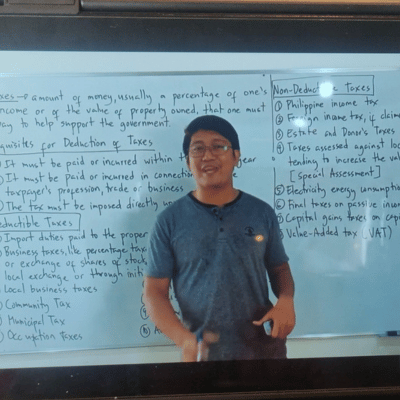 axes → amount of money, usually a percentage of one's
income or of the value of property owned, that one must
pay to help support the government.
quisites for Deduction of Taxes
It must be paid or incurred within year
It must be paid or incurred in connection
taxpayer's profession, trade or business
The tax must be imposed directly
eductible Taxes
Import duties paid to the proper
Business taxes, like percentage tax
or exchange of shares of stock
local exchange or through
Local business taxes
Community Tax
Municipal Tax
Occupation Taxes
Non-Deductible Taxes
① Philippine income tax
② Foreign income tax, if claime
③ Estate and Donor's Taxes
④ Taxes assessed against loc
tending to increase the valu
[Special Assessment]
⑤ Electricity energy consumptio
⑥ Final taxes on passive incom
⑦ Capital gains taxes on capi
⑧ Value-Added tax (VAT)